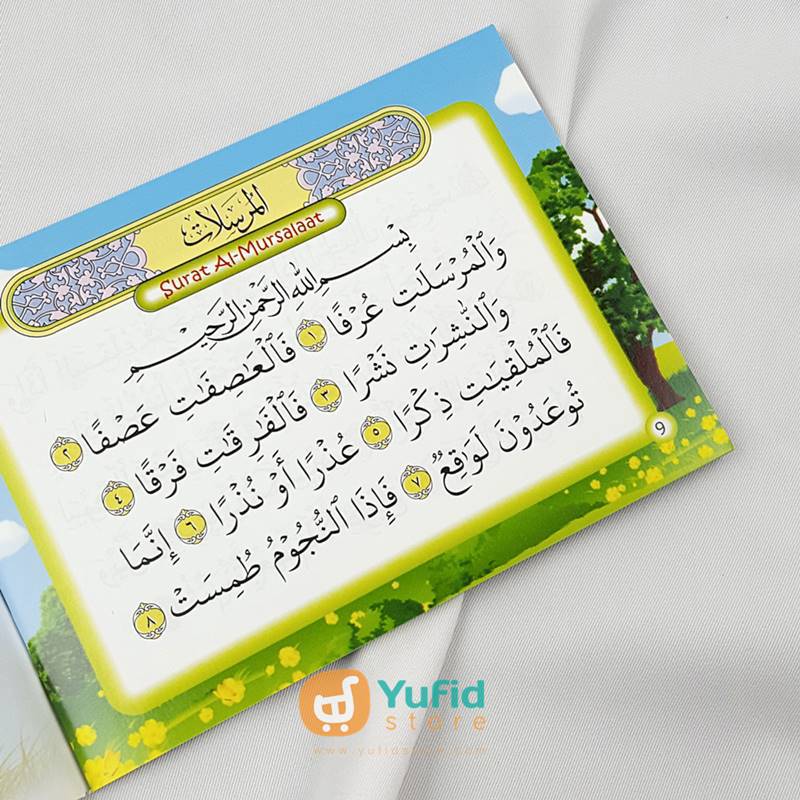 المرسلات
Surat Al-Mursalaat
بِسْمِ اللهِ الرَّحْمٰنِ الرَّحِيْمِ
وَٱلْمُرْسَلَٰتِ عُرْفًا ١ فَٱلْعَٰصِفَٰتِ عَصْفًا ٢
وَٱلنَّٰشِرَٰتِ نَشْرًا ٣ فَٱلْفَٰرِقَٰتِ فَرْقًا ٤
فَٱلْمُلْقِيَٰتِ ذِكْرًا ٥ عُذْرًا أَوْ نُذْرًا ٦ إِنَّمَا
تُوعَدُوْنَ لَوَٰقِعٌ ٧ فَإِذَا ٱلنُّجُوْمُ طُمِسَتْ ٨
9
Yufid
store
www.yufidstore.com